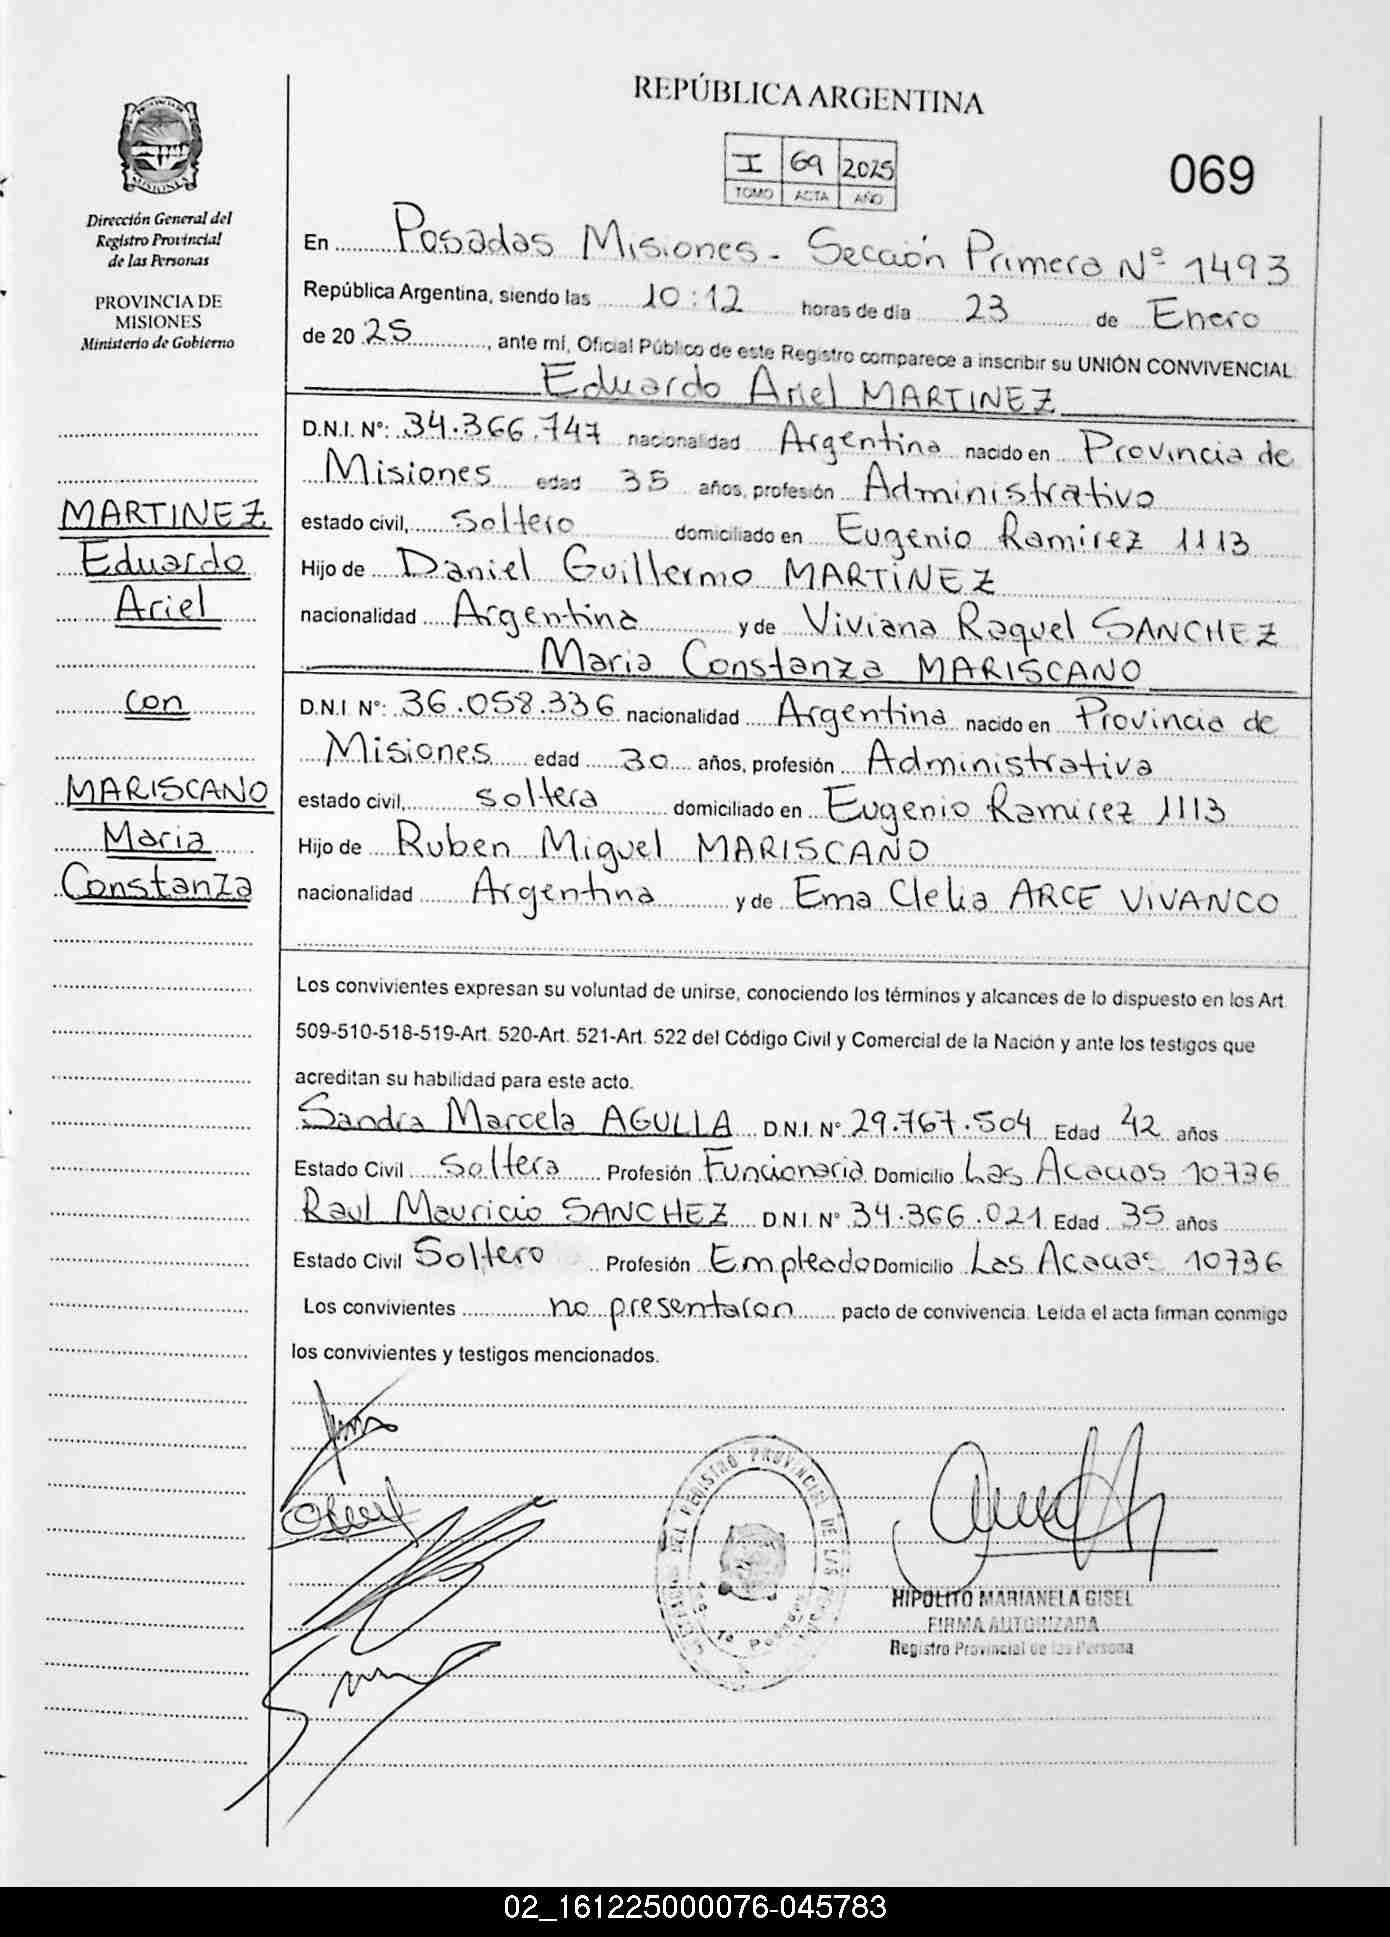 REPÚBLICA ARGENTINA
I 69 2025
TOMO ACTA AÑO
069
PROVINCIA DE MISIONES
Dirección General del
Registro Provincial
de las Personas
PROVINCIA DE
MISIONES
Ministerio de Gobierno
MARTINEZ
Eduardo
Ariel
con
MARISCANO
Maria
Constanza
En Posadas Misiones - Sección Primera Nº 1493
República Argentina, siendo las 10:12 horas de día 23 de Enero
de 2025, ante mí, Oficial Público de este Registro comparece a inscribir su UNIÓN CONVIVENCIAL
Eduardo Ariel MARTINEZ
D.N.I. Nº: 34.366.747 nacionalidad Argentina nacido en Provincia de
Misiones edad 35 años, profesión Administrativo
estado civil, soltero domiciliado en Eugenio Ramirez 1113
Hijo de Daniel Guillermo MARTINEZ
nacionalidad Argentina y de Viviana Raquel SANCHEZ
Maria Constanza MARISCANO
D.N.I Nº: 36.058.336 nacionalidad Argentina nacido en Provincia de
Misiones edad 30 años, profesión Administrativa
estado civil, soltera domiciliado en Eugenio Ramirez 1113
Hijo de Ruben Miguel MARISCANO
nacionalidad Argentina y de Ema Clelia ARCE VIVANCO
Los convivientes expresan su voluntad de unirse, conociendo los términos y alcances de lo dispuesto en los Art.
509-510-518-519-Art. 520-Art. 521-Art. 522 del Código Civil y Comercial de la Nación y ante los testigos que
acreditan su habilidad para este acto.
Sandra Marcela AGULLA D.N.I. Nº 29.767.504 Edad 42 años
Estado Civil Soltera Profesión Funcionaria Domicilio Las Acacias 10736
Raul Mauricio SANCHEZ D.N.I. Nº 34.366.021 Edad 35 años
Estado Civil Soltero Profesión Empleado Domicilio Las Acacias 10736
Los convivientes no presentaron pacto de convivencia. Leida el acta firman conmigo
los convivientes y testigos mencionados.
DEL REGISTRO PROVINCIAL DE LAS
HIPOLITO MARIANELA GISEL
FIRMA AUTORIZADA
Registro Provincial de las Persona
02_161225000076-045783